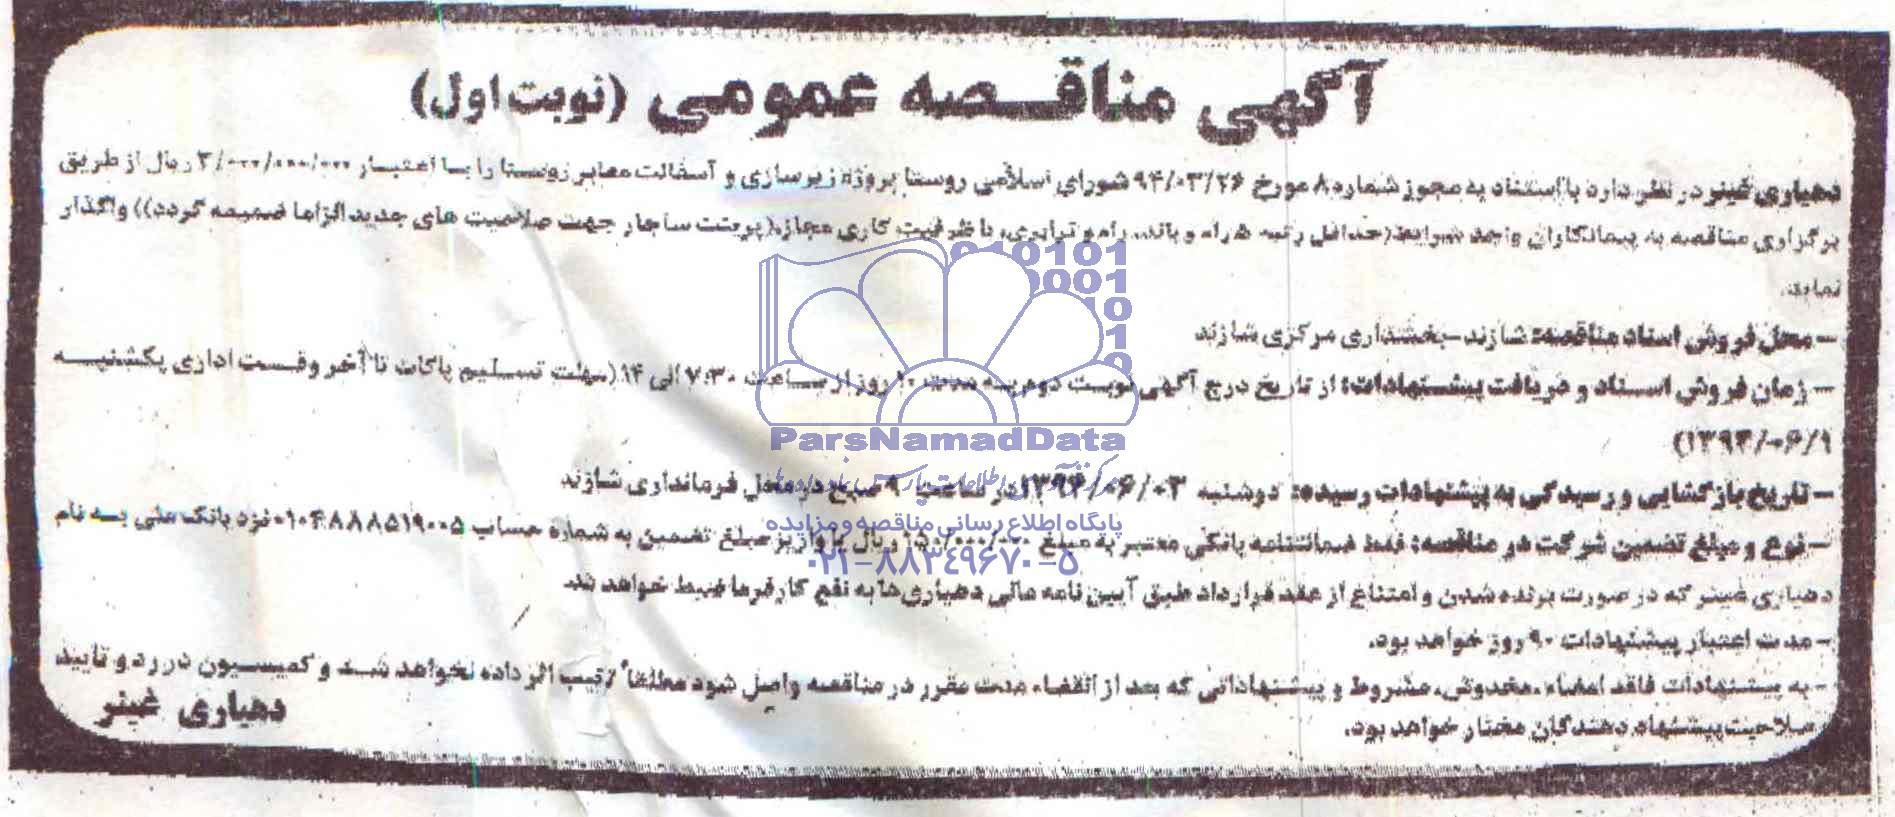 آگهی مناقصه عمومی (نوبت اول)
دهیاری غینر در نظر دارد با استناد به مجوز شماره ۸ مورخ ۹۴/۰۳/۲۶ شورای اسلامی روستا پروژه زیرسازی و آسفالت معابر روستا را با اعتبار ۳/۰۰۰/۰۰۰/۰۰۰ ریال از طریق
برگزاری مناقصه به پیمانکاران واجد شرایط (حداقل رتبه ۵ راه و باند، راه و ترابری، با ظرفیت کاری مجاز،(پرینت ساجار جهت صلاحیت های جدید الزاما ضمیمه گردد)) واگذار
نماید.
– محل فروش اسناد مناقصه: شازند–بخشداری مرکزی شازند
– زمان فروش اسناد و دریافت پیشنهادات: از تاریخ درج آگهی نوبت دوم به مدت ۱۰ روز از ساعت ۷:۳۰ الی ۱۴ (مهلت تسلیم پاکات تا آخر وقت اداری یکشنبه
۱۳۹۴/۰۶/۱)
– تاریخ بازگشایی و رسیدگی به پیشنهادات رسیده: دوشنبه در ساعت ۹ صبح در محل فرمانداری شازند
– نوع و مبلغ تضمین شرکت در مناقصه: فقط ضمانتنامه بانکی معتبر به مبلغ ۱۵۰/۰۰۰/۰۰۰ ریال یا واریز مبلغ تضمین به شماره حساب ۰۱۰۶۸۸۸۵۱۹۰۰۵ نزد بانک ملی به نام
دهیاری غینر که در صورت برنده شدن و امتناع از عقد قرارداد طبق آیین نامه مالی دهیاری ها به نفع کارفرما ضبط خواهد شد.
– مدت اعتبار پیشنهادات ۹۰ روز خواهد بود.
– به پیشنهادات فاقد امضاء، مخدوش، مشروط و پیشنهاداتی که بعد از انقضاء مدت مقرر در مناقصه واصل شود مطلقاً ترتیب اثر داده نخواهد شد و کمیسیون در رد و تأیید
صلاحیت پیشنهاد دهندگان مختار خواهد بود.
دهیاری غینر
010101
0001
10
1
0
ParsNamadData
پایگاه اطلاع رسانی مناقصه و مزایده
۰۲۱-۸۸۳٤۹۶۷۰-۵